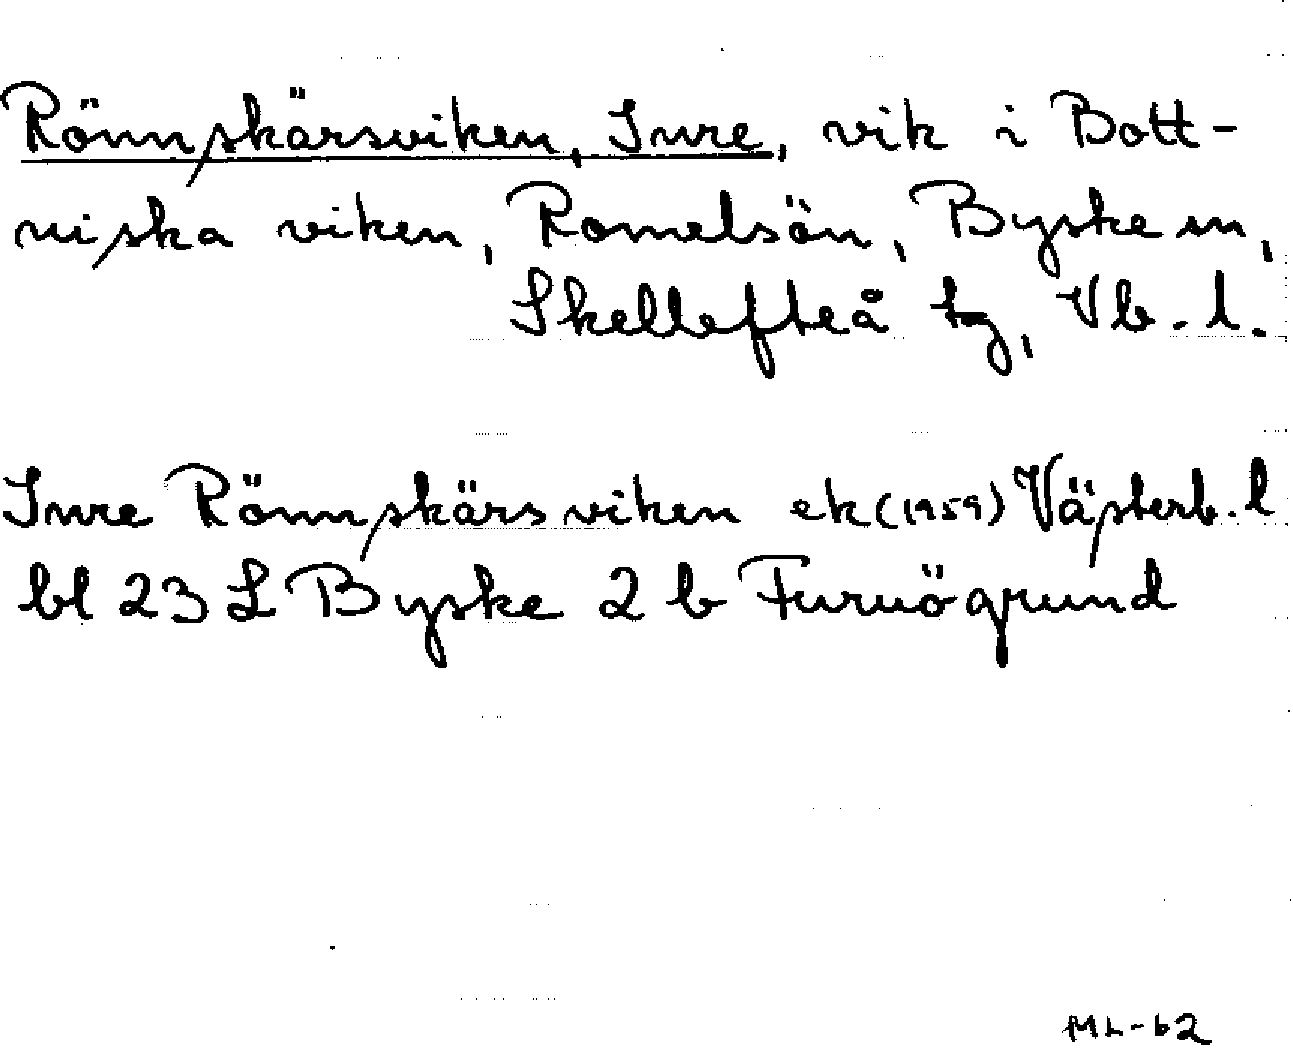 Rönnskärsviken, Inre, vik i Bott-
niska viken, Romelsön, Byske sn,
Skellefteå tg, Vb. l.
Inre Rönnskärsviken ek (1959) Västerb. l
bl 23 L Byske 2 b Furuögrund
ML-62